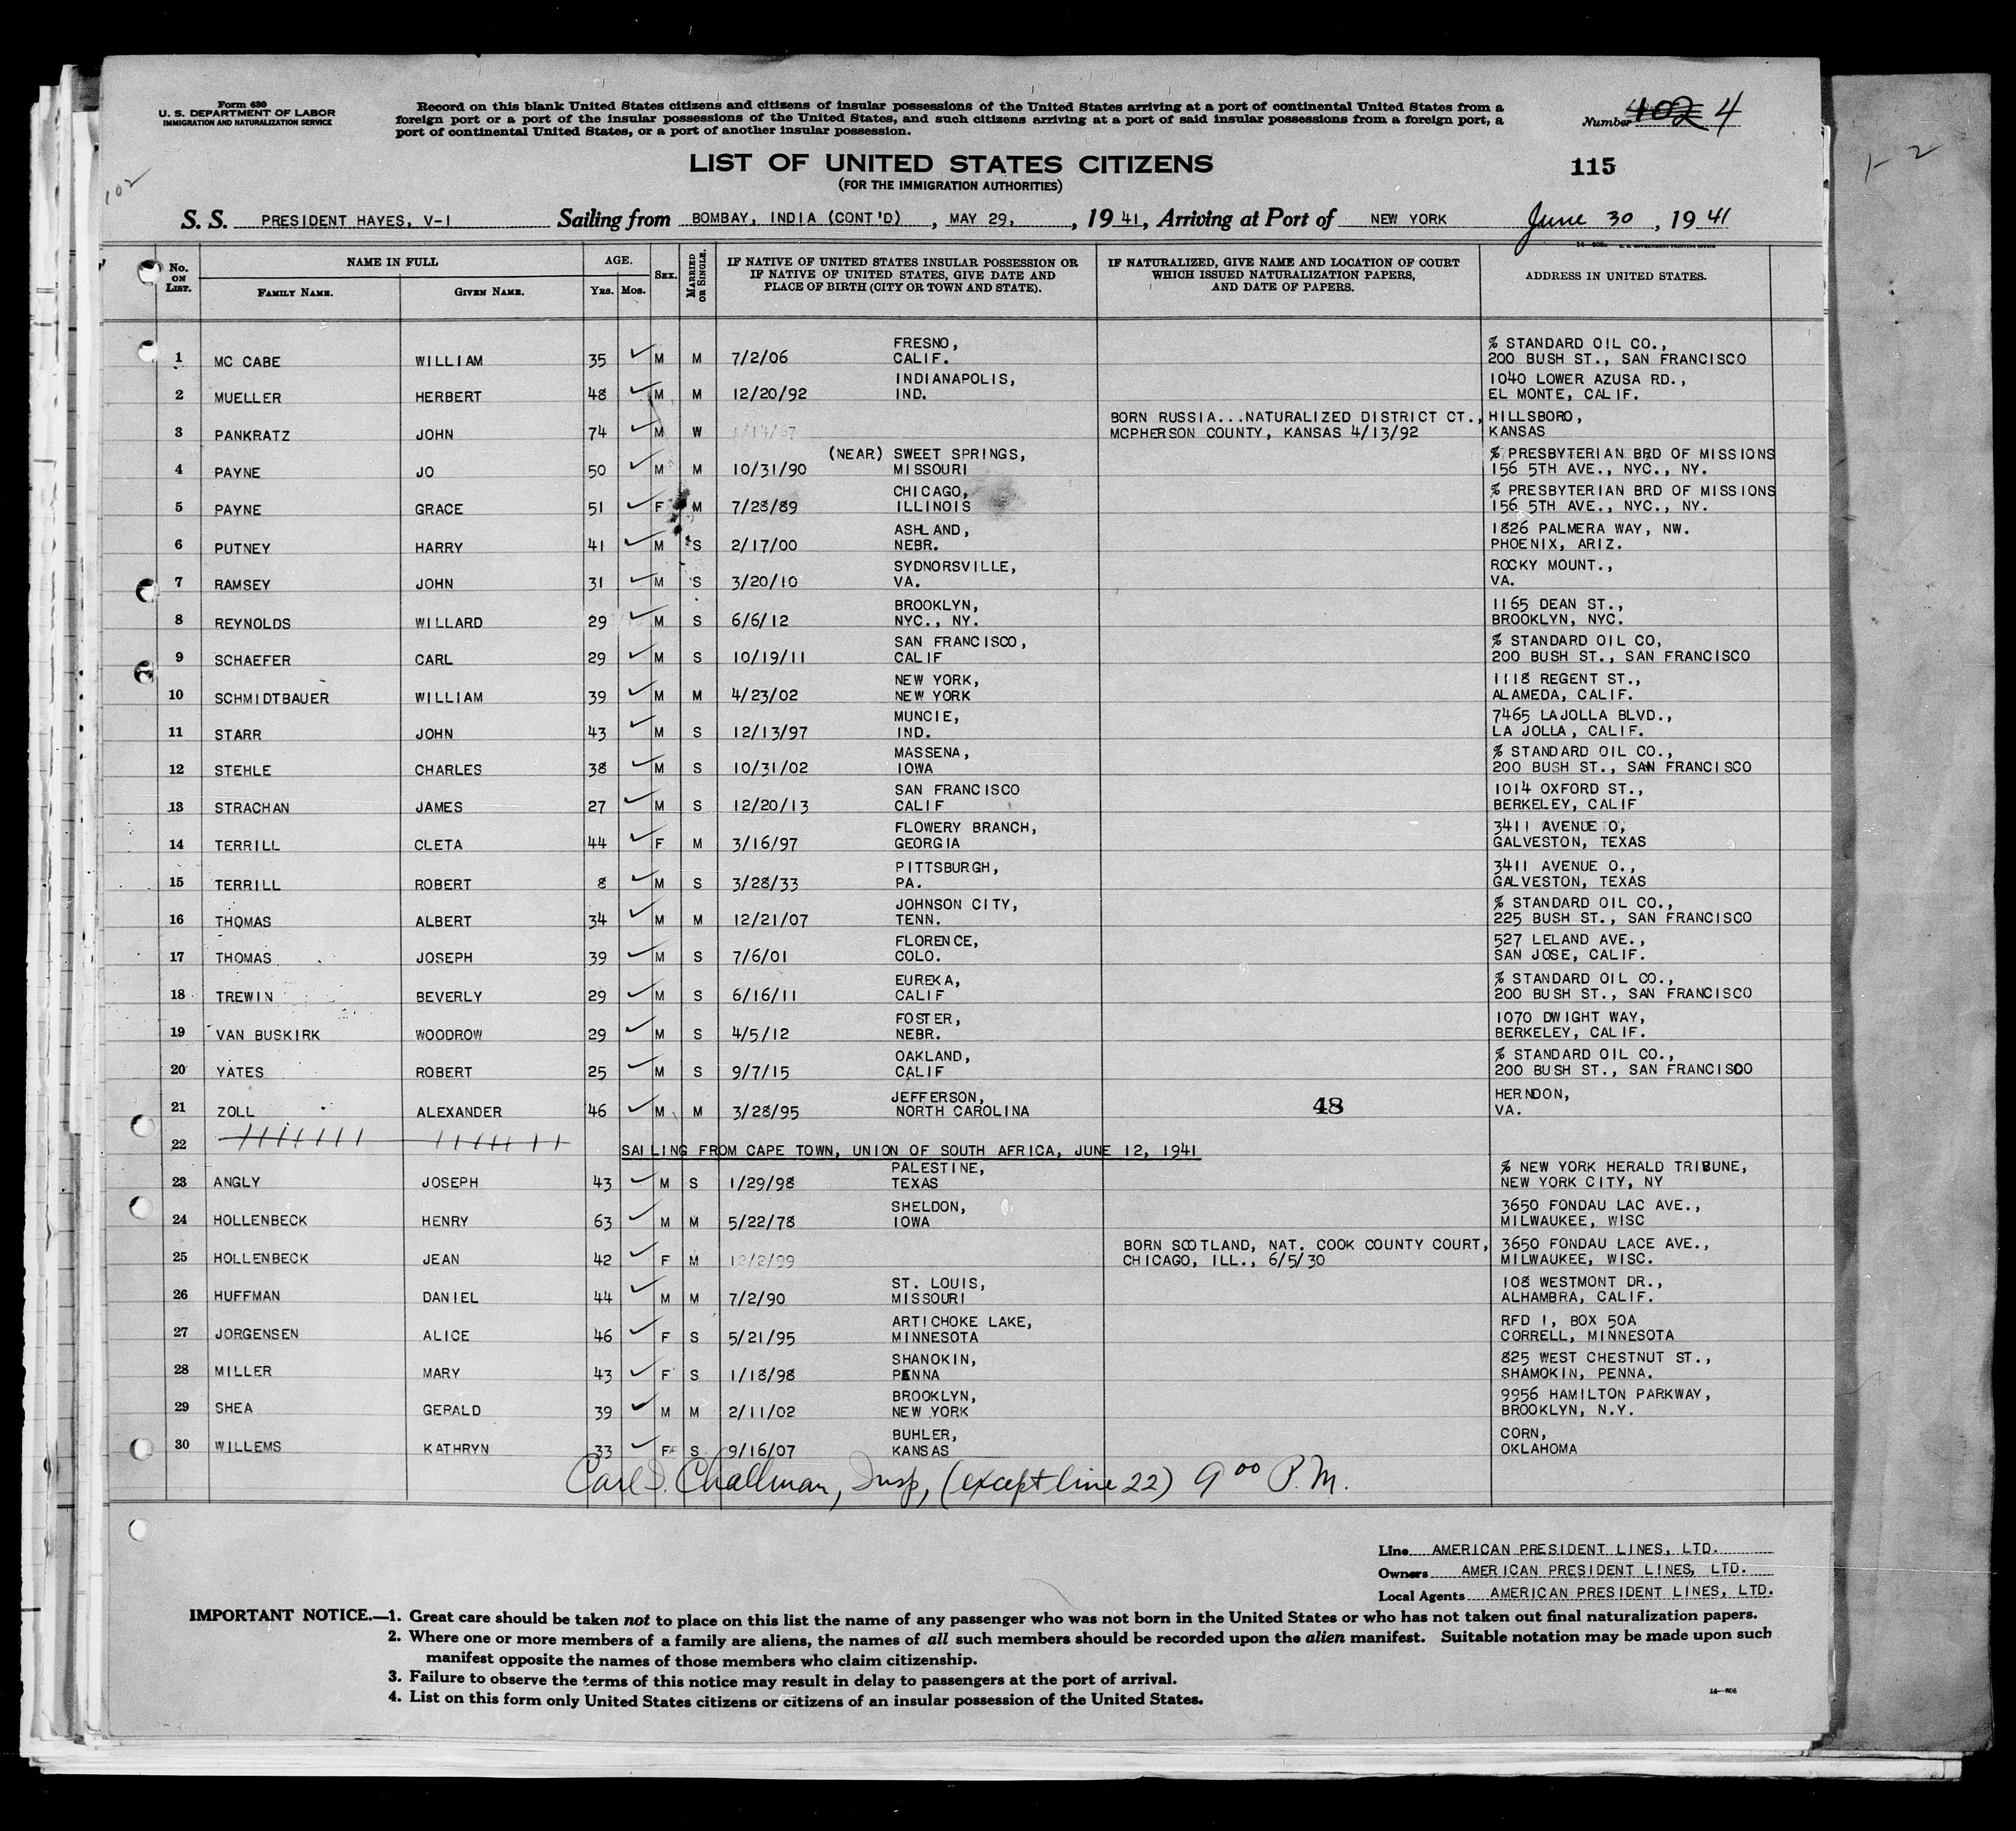 Form 630
U. S. DEPARTMENT OF LABOR
IMMIGRATION AND NATURALIZATION SERVICE
Record on this blank United States citizens and citizens of insular possessions of the United States arriving at a port of continental United States from a
foreign port or a port of the insular possessions of the United States, and such citizens arriving at a port of said insular possessions from a foreign port, a
port of continental United States, or a port of another insular possession.
Number 102 4
LIST OF UNITED STATES CITIZENS
(FOR THE IMMIGRATION AUTHORITIES)
115
1-2
102
S. S. PRESIDENT HAYES, V-1 Sailing from BOMBAY, INDIA (CONT'D), MAY 29, , 19 41, Arriving at Port of NEW YORK June 30, 19 41
No. ON LIST. NAME IN FULL FAMILY NAME. GIVEN NAME. AGE. Yrs. Mos. SEX. MARRIED OR SINGLE. IF NATIVE OF UNITED STATES INSULAR POSSESSION OR IF NATIVE OF UNITED STATES, GIVE DATE AND PLACE OF BIRTH (CITY OR TOWN AND STATE). IF NATURALIZED, GIVE NAME AND LOCATION OF COURT WHICH ISSUED NATURALIZATION PAPERS, AND DATE OF PAPERS. ADDRESS IN UNITED STATES.
FRESNO, % STANDARD OIL CO.,
1 MC CABE WILLIAM 35 ✓ M M 7/2/06 CALIF. 200 BUSH ST., SAN FRANCISCO
INDIANAPOLIS, 1040 LOWER AZUSA RD.,
2 MUELLER HERBERT 48 ✓ M M 12/20/92 IND. EL MONTE, CALIF.
BORN RUSSIA...NATURALIZED DISTRICT CT., HILLSBORO,
3 PANKRATZ JOHN 74 ✓ M W 1/14/67 MCPHERSON COUNTY, KANSAS 4/13/92 KANSAS
(NEAR) SWEET SPRINGS, % PRESBYTERIAN BRD OF MISSIONS
4 PAYNE JO 50 ✓ M M 10/31/90 MISSOURI 156 5TH AVE., NYC., NY.
CHICAGO, % PRESBYTERIAN BRD OF MISSIONS
5 PAYNE GRACE 51 ✓ F M 7/28/89 ILLINOIS 156 5TH AVE., NYC., NY.
ASHLAND, 1826 PALMERA WAY, NW.
6 PUTNEY HARRY 41 ✓ M S 2/17/00 NEBR. PHOENIX, ARIZ.
SYDNORSVILLE, ROCKY MOUNT.,
7 RAMSEY JOHN 31 ✓ M S 3/20/10 VA. VA.
BROOKLYN, 1165 DEAN ST.,
8 REYNOLDS WILLARD 29 ✓ M S 6/6/12 NYC., NY. BROOKLYN, NYC.
SAN FRANCISCO, % STANDARD OIL CO,
9 SCHAEFER CARL 29 ✓ M S 10/19/11 CALIF 200 BUSH ST., SAN FRANCISCO
NEW YORK, 1118 REGENT ST.,
10 SCHMIDTBAUER WILLIAM 39 ✓ M M 4/23/02 NEW YORK ALAMEDA, CALIF.
MUNCIE, 7465 LAJOLLA BLVD.,
11 STARR JOHN 43 ✓ M S 12/13/97 IND. LA JOLLA, CALIF.
MASSENA, % STANDARD OIL CO.,
12 STEHLE CHARLES 38 ✓ M S 10/31/02 IOWA 200 BUSH ST., SAN FRANCISCO
SAN FRANCISCO 1014 OXFORD ST.,
13 STRACHAN JAMES 27 ✓ M S 12/20/13 CALIF BERKELEY, CALIF
FLOWERY BRANCH, 3411 AVENUE O,
14 TERRILL CLETA 44 ✓ F M 3/16/97 GEORGIA GALVESTON, TEXAS
PITTSBURGH, 3411 AVENUE O.,
15 TERRILL ROBERT 8 ✓ M S 3/28/33 PA. GALVESTON, TEXAS
JOHNSON CITY, % STANDARD OIL CO.,
16 THOMAS ALBERT 34 ✓ M M 12/21/07 TENN. 225 BUSH ST., SAN FRANCISCO
FLORENCE, 527 LELAND AVE.,
17 THOMAS JOSEPH 39 ✓ M S 7/6/01 COLO. SAN JOSE, CALIF.
EUREKA, % STANDARD OIL CO.,
18 TREWIN BEVERLY 29 ✓ M S 6/16/11 CALIF 200 BUSH ST., SAN FRANCISCO
FOSTER, 1070 DWIGHT WAY,
19 VAN BUSKIRK WOODROW 29 ✓ M S 4/5/12 NEBR. BERKELEY, CALIF.
OAKLAND, % STANDARD OIL CO.,
20 YATES ROBERT 25 ✓ M S 9/7/15 CALIF 200 BUSH ST., SAN FRANCISOO
JEFFERSON, HERNDON,
21 ZOLL ALEXANDER 46 ✓ M M 3/28/95 NORTH CAROLINA 48 VA.
22 SAILING FROM CAPE TOWN, UNION OF SOUTH AFRICA, JUNE 12, 1941
PALESTINE, % NEW YORK HERALD TRIBUNE,
23 ANGLY JOSEPH 43 ✓ M S 1/29/98 TEXAS NEW YORK CITY, NY
SHELDON, 3650 FONDAU LAC AVE.,
24 HOLLENBECK HENRY 63 ✓ M M 5/22/78 IOWA MILWAUKEE, WISC
BORN SCOTLAND, NAT. COOK COUNTY COURT, 3650 FONDAU LACE AVE.,
25 HOLLENBECK JEAN 42 ✓ F M 12/2/99 CHICAGO, ILL., 6/5/30 MILWAUKEE, WISC.
ST. LOUIS, 108 WESTMONT DR.,
26 HUFFMAN DANIEL 44 ✓ M M 7/2/90 MISSOURI ALHAMBRA, CALIF.
ARTICHOKE LAKE, RFD 1, BOX 50A
27 JORGENSEN ALICE 46 ✓ F S 5/21/95 MINNESOTA CORRELL, MINNESOTA
SHANOKIN, 825 WEST CHESTNUT ST.,
28 MILLER MARY 43 ✓ F S 1/18/98 PENNA SHAMOKIN, PENNA.
BROOKLYN, 9956 HAMILTON PARKWAY,
29 SHEA GERALD 39 ✓ M M 2/11/02 NEW YORK BROOKLYN, N.Y.
BUHLER, CORN,
30 WILLEMS KATHRYN 33 ✓ F S 9/16/07 KANSAS OKLAHOMA
Carl S. Challman, Insp, (except line 22) 9 00 P.M.
Line AMERICAN PRESIDENT LINES, LTD.
Owners AMERICAN PRESIDENT LINES, LTD.
Local Agents AMERICAN PRESIDENT LINES, LTD.
IMPORTANT NOTICE.—1. Great care should be taken not to place on this list the name of any passenger who was not born in the United States or who has not taken out final naturalization papers.
2. Where one or more members of a family are aliens, the names of all such members should be recorded upon the alien manifest. Suitable notation may be made upon such
manifest opposite the names of those members who claim citizenship.
3. Failure to observe the terms of this notice may result in delay to passengers at the port of arrival.
4. List on this form only United States citizens or citizens of an insular possession of the United States.
14—606